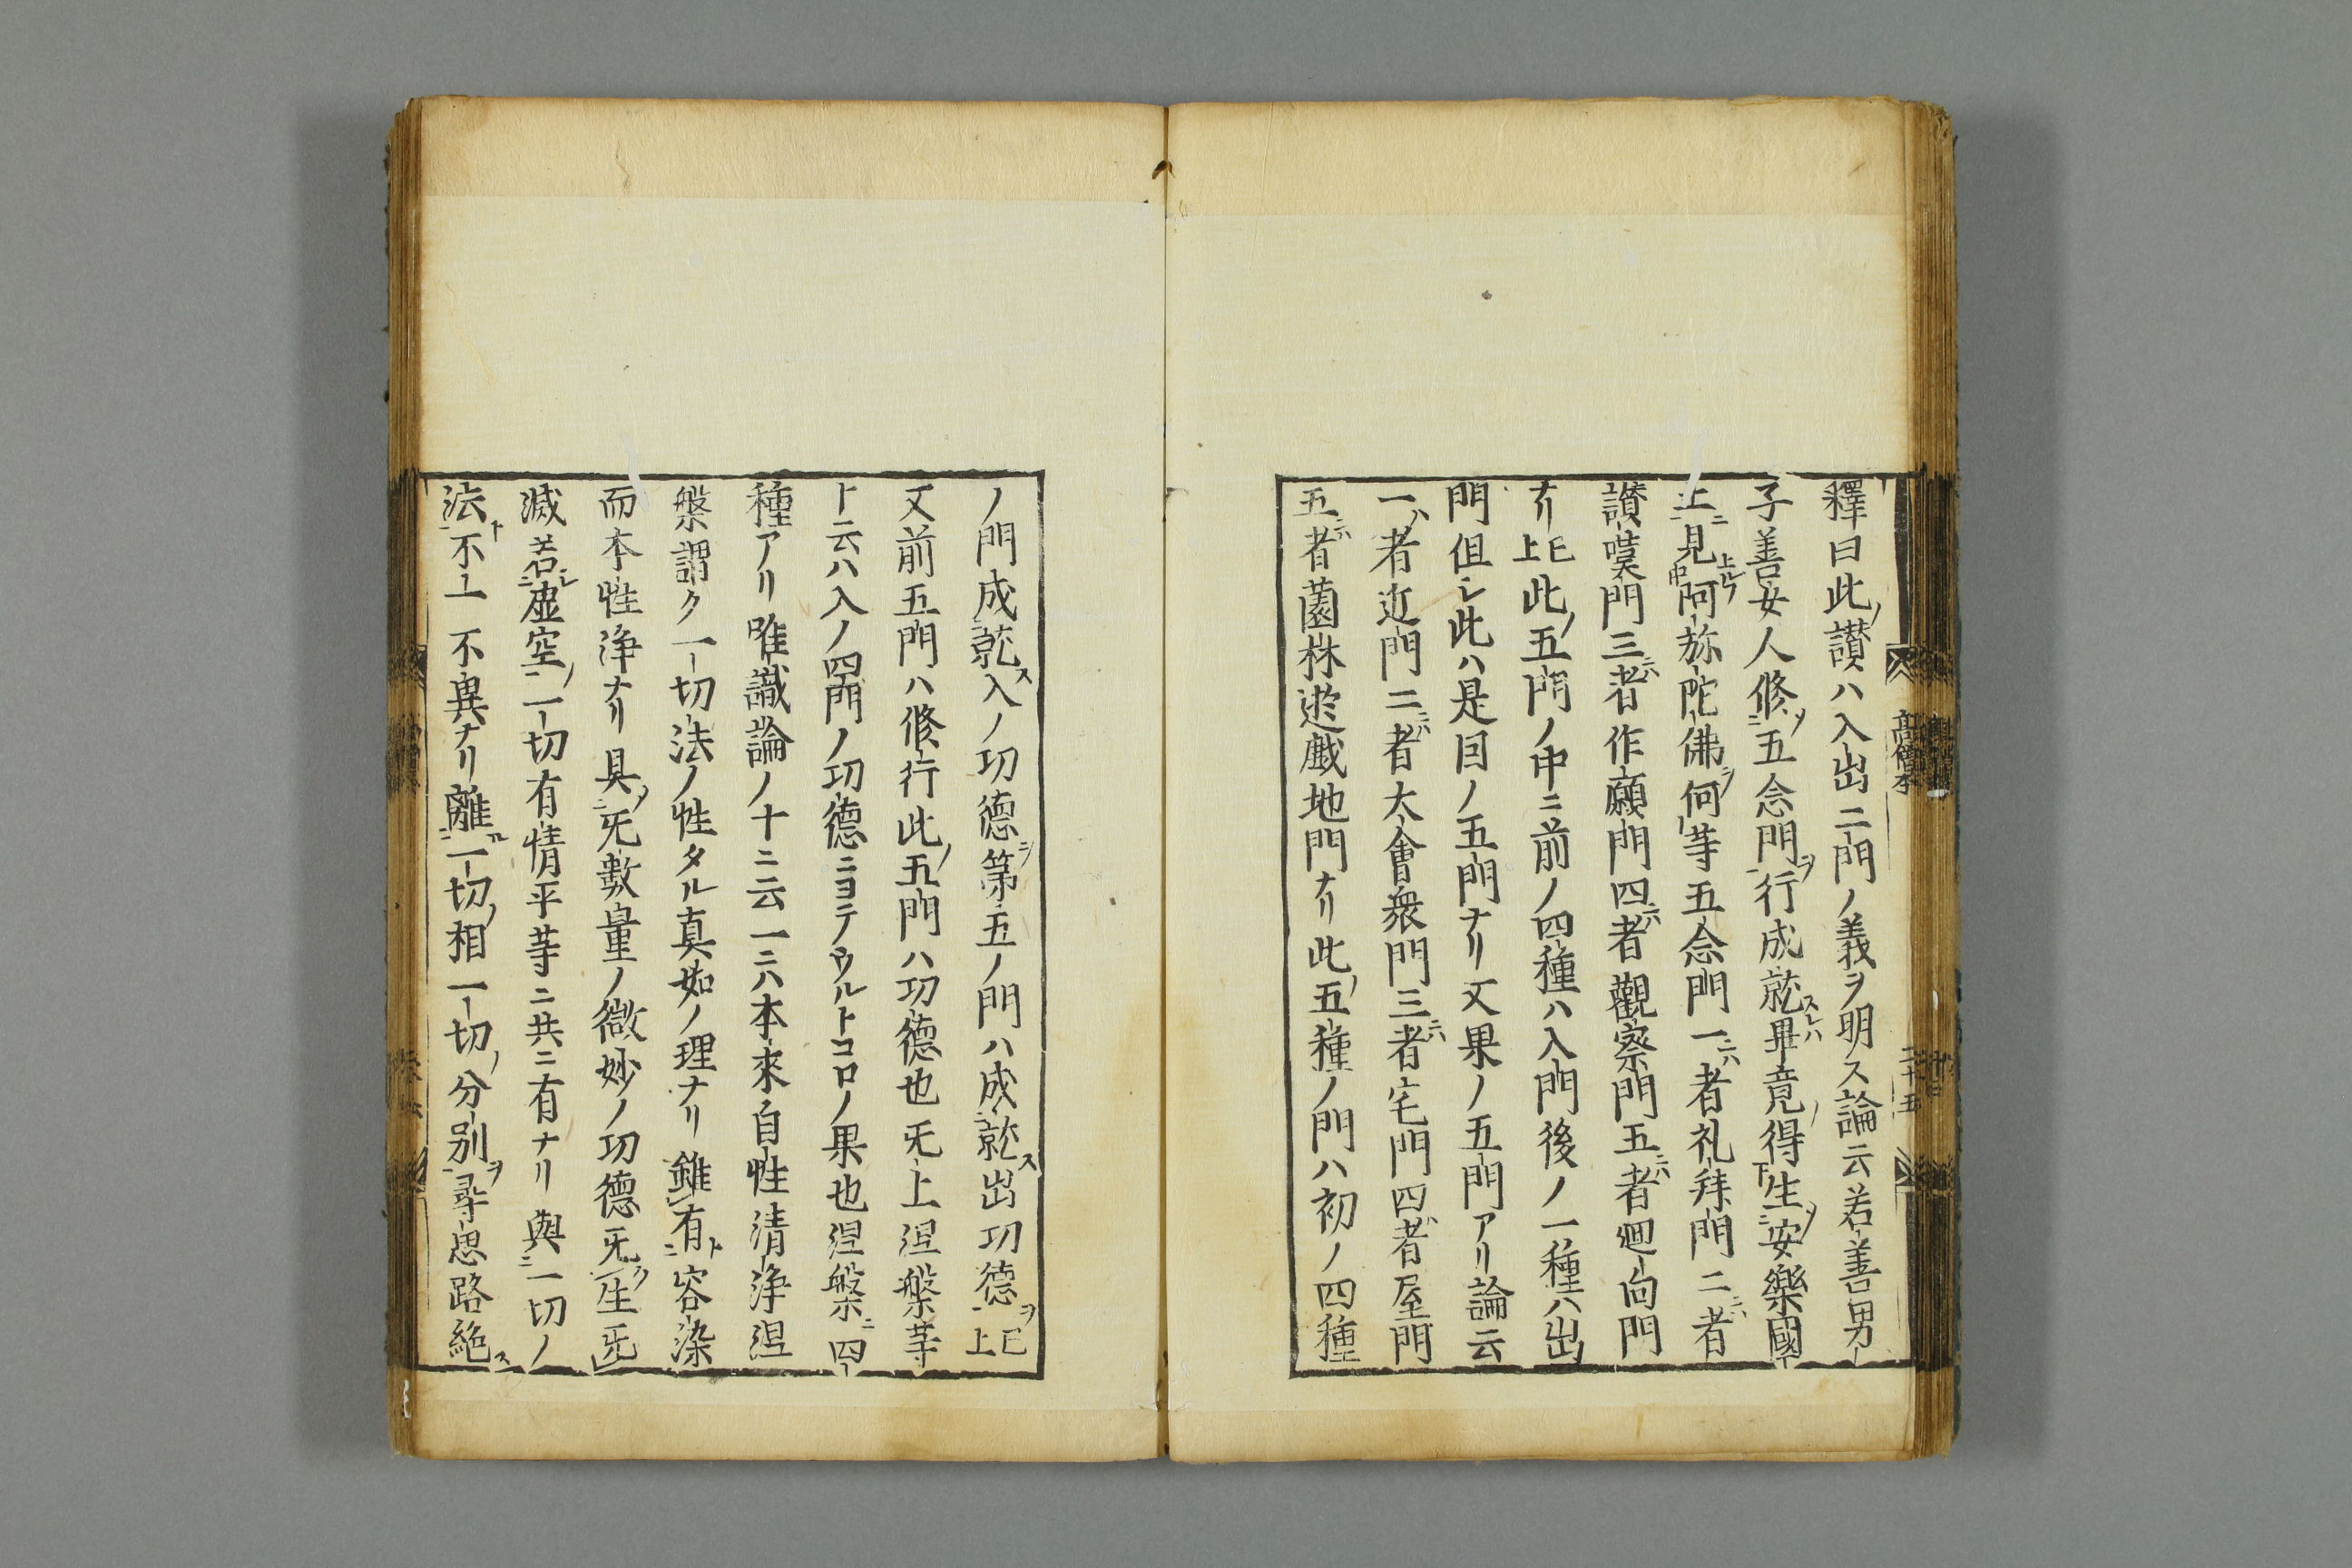 釋曰此ノ讃ハ入出二門ノ義ヲ明ス論云若善男
子善女人修五念門ヲ行成就スレハ畢竟得生安樂國
上見阿弥陀佛何等五念門一者礼拜門二者
讃嘆門三者作願門四者觀察門五者廻向門
ナリ已上此ノ五門ノ中ニ前ノ四種ハ入門後ノ一種ハ出
門但シ此ハ是因ノ五門ナリ又果ノ五門アリ論云
一者近門二者大會衆門三者宅門四者屋門
五者薗林遊戯地門ナリ此ノ五種ノ門ハ初ノ四種
高僧本
二十五
ノ門成就ス入ノ功德第五ノ門ハ成就ス出功德ヲ已上
又前五門ハ修行此ノ五門ハ功德也无上涅槃等
ト云ハ入ノ四門ノ功德ニヨテウルトコロノ果也涅槃ニ四
種アリ唯識論ノ十ニ云一ニハ本來自性清浄涅
槃謂ク一切法ノ性タル真如ノ理ナリ雖有ト容染
而本性浄ナリ具无數量ノ微妙ノ功德无生无
滅若虚空ノ一切有情平等ニ共ニ有ナリ與一切ノ
法不一不異ナリ離一切ノ相一切ノ分別ヲ尋思路絶ス